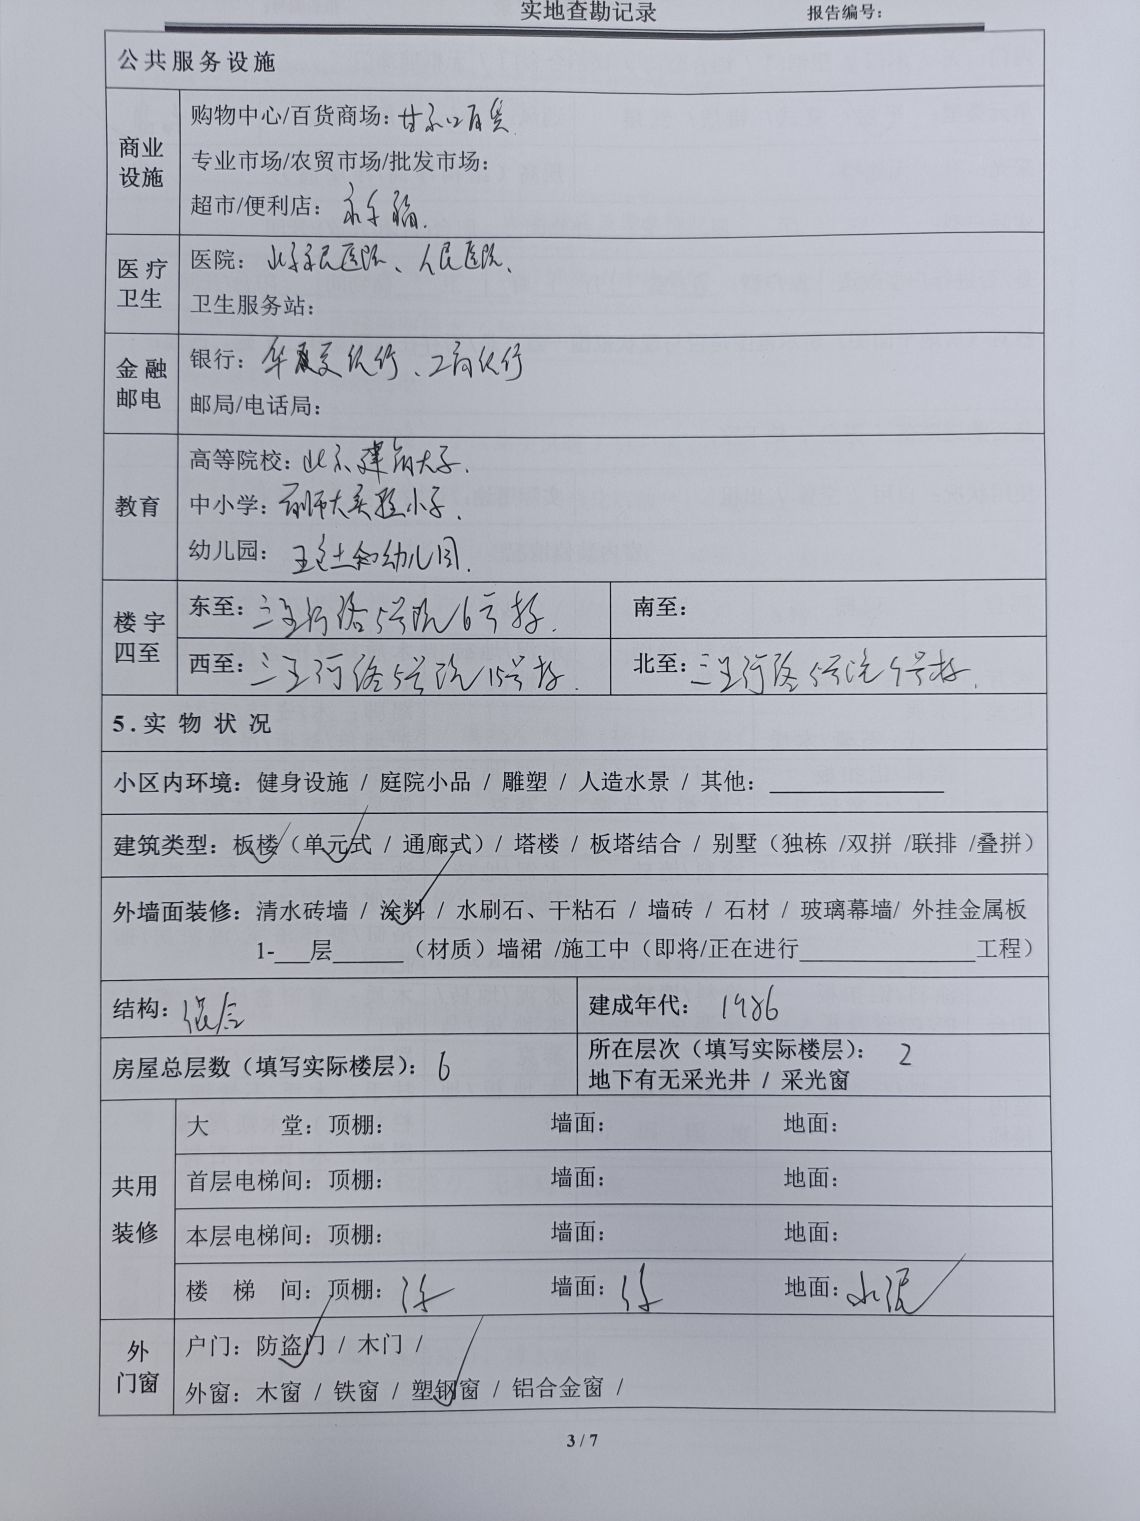 实地查勘记录
报告编号：
公共服务设施
商业设施
购物中心/百货商场：甘家口百货.
专业市场/农贸市场/批发市场：
超市/便利店：
医疗卫生
医院：人民医院、
卫生服务站：
金融邮电
银行：华夏银行、工商银行
邮局/电话局：
教育
高等院校：北京建筑大学.
中小学：首师大实验小学.
幼儿园：幼儿园.
楼宇四至
东至：三里河路5号院16号楼.
南至：
西至：三里河路5号院15号楼.
北至：三里河路5号院9号楼.
5.实物状况
小区内环境：健身设施 / 庭院小品 / 雕塑 / 人造水景 / 其他：_______________
建筑类型：板楼（单元式 / 通廊式）/ 塔楼 / 板塔结合 / 别墅（独栋 /双拼 /联排 /叠拼）
外墙面装修：清水砖墙 / 涂料 / 水刷石、干粘石 / 墙砖 / 石材 / 玻璃幕墙/ 外挂金属板
1-___层______（材质）墙裙 /施工中（即将/正在进行_______________工程）
结构：混合
建成年代：1986
房屋总层数（填写实际楼层）：6
所在层次（填写实际楼层）：2
地下有无采光井 / 采光窗
共用装修
大堂：顶棚：
墙面：
地面：
首层电梯间：顶棚：
墙面：
地面：
本层电梯间：顶棚：
墙面：
地面：
楼梯间：顶棚：涂
墙面：涂
地面：水泥
外门窗
户门：防盗门 / 木门 /
外窗：木窗 / 铁窗 / 塑钢窗 / 铝合金窗 /
3 / 7